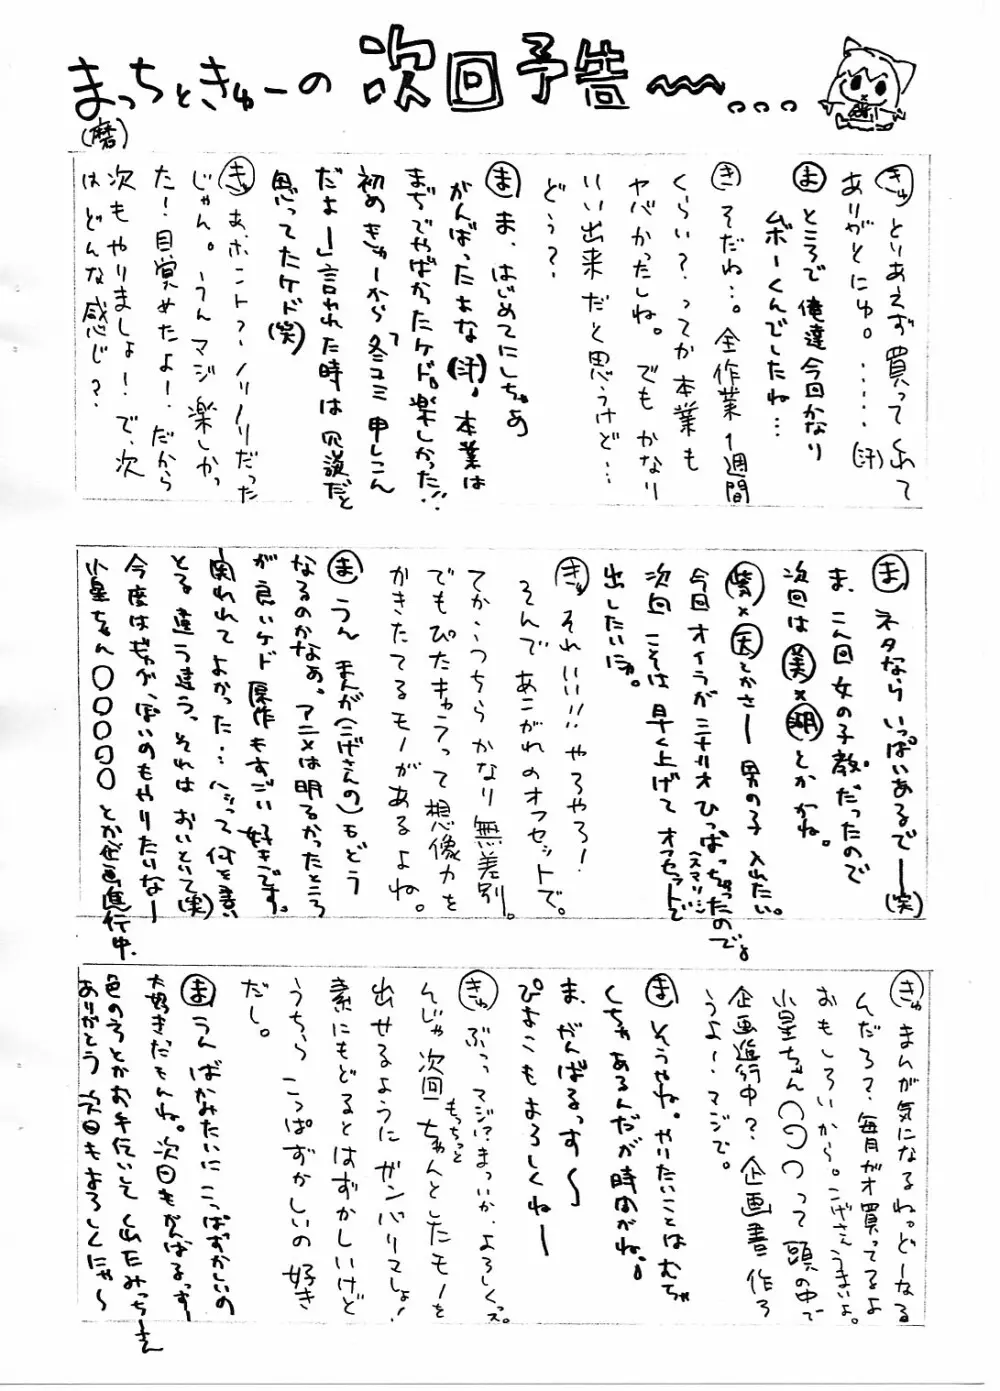 まっちときゅーの 次回予告〜...
(磨)
きゅ とりあえず買ってくれて
ありがとにゅ。......(汗)
ま ところで俺達今回かなり
ムボーくんでしたね...
き そだね...。全作業1週間
くらい?ってか本業も
ヤバかったしね。でもかなり
いい出来だと思うけど...
どぅ?
ま ま、はじめてにしちゃあ
がんばったよな(汗)。本業は
まぢでやばかったケド。楽しかった!!
初めきゅーから「冬コミ申しこん
だよー」言われた時は冗談だと
思ってたケド(笑)
きゅ あ、ホント?ノリノリだった
じゃん。うんマジ楽しかっ
た!目覚めたよー!だから
次もやりましょ!で、次
はどんな感じ?
ま ネタならいっぱいあるでー(笑)
ま、こん回女の子教だったので
次回は美×湖とかかね。
紫×天とかさー男の子入れたい。
今回オイラがシナリオひっぱっちゃったので。
次回こそは早く上げてオフセットで
出したいにゅ。
きゅ それいい!!!やろやろ!
そんであこがれのオフセットで。
てか、うちらかなり無差別。
でもぴたきゅうって想像力を
かきたてるモノがあるよね。
ま うん まんが(こげさんの)もどう
なるのかなぁ。アニメは明るかったところ
が良いケド原作もすごい好きです。
とる違う違うっそれはおいといて(笑)
今度はギャグっぽいのもやりたいなー
小星ちゃん〇〇〇〇〇とか企画進行中。
きゅ まんが気になるね。どーなる
んだろ?毎月ガオ買ってるよ
おもしろいから。こげさんうまいよ。
小星ちゃん〇〇〇って頭の中で
企画進行中?企画書作ろ
うよー。マジで。
ま そうやね。やりたいことはむちゃ
くちゃあるんだが時間がね。
ま、がんばるっす〜
ぴよこもよろしくねー
きゅ ぶっってマジ!?まっいっか、よろしくっス。
んじゃ次回もちっとちゃんとしたモノを
出せるようにガンバリマしょ!
素にもどるとはずかしいけど
うちら こっぱずかしいの好き
だし。
ま うん ばかみたいにこっぱずかしいの
大好きだもんね。次回もがんばるっすー
色のろとかお手伝いしてくれたみっちーさん
ありがとう 次回もよろしくにゃ〜